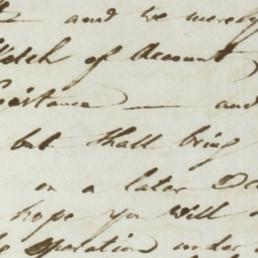 and we merely
of Account
and
but Shall bring
on a later
hope you will
operation under